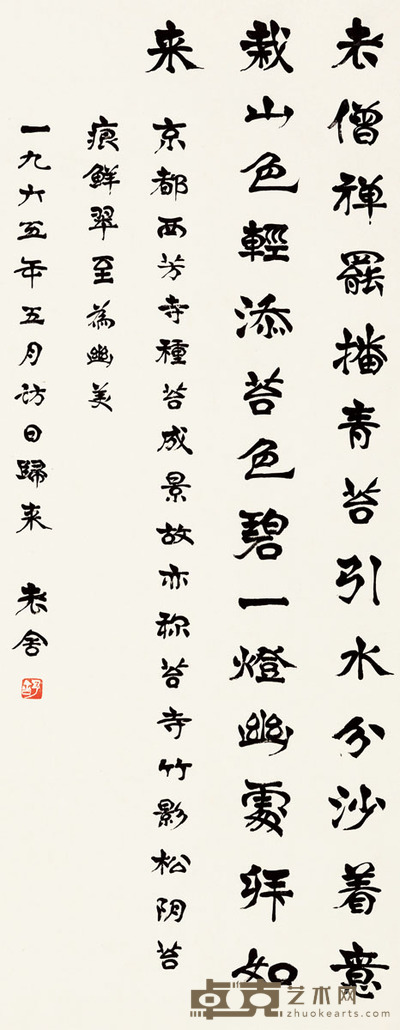 老僧禅罷播青苔引水分沙着意
栽山色輕添苔色碧一燈幽處拜如
来
京都西芳寺種苔成景故亦称苔寺竹影松阴苔
痕鲜翠至為幽美
一九六五年五月访日歸来 老舍
卓克艺术网
zhuokearts.com